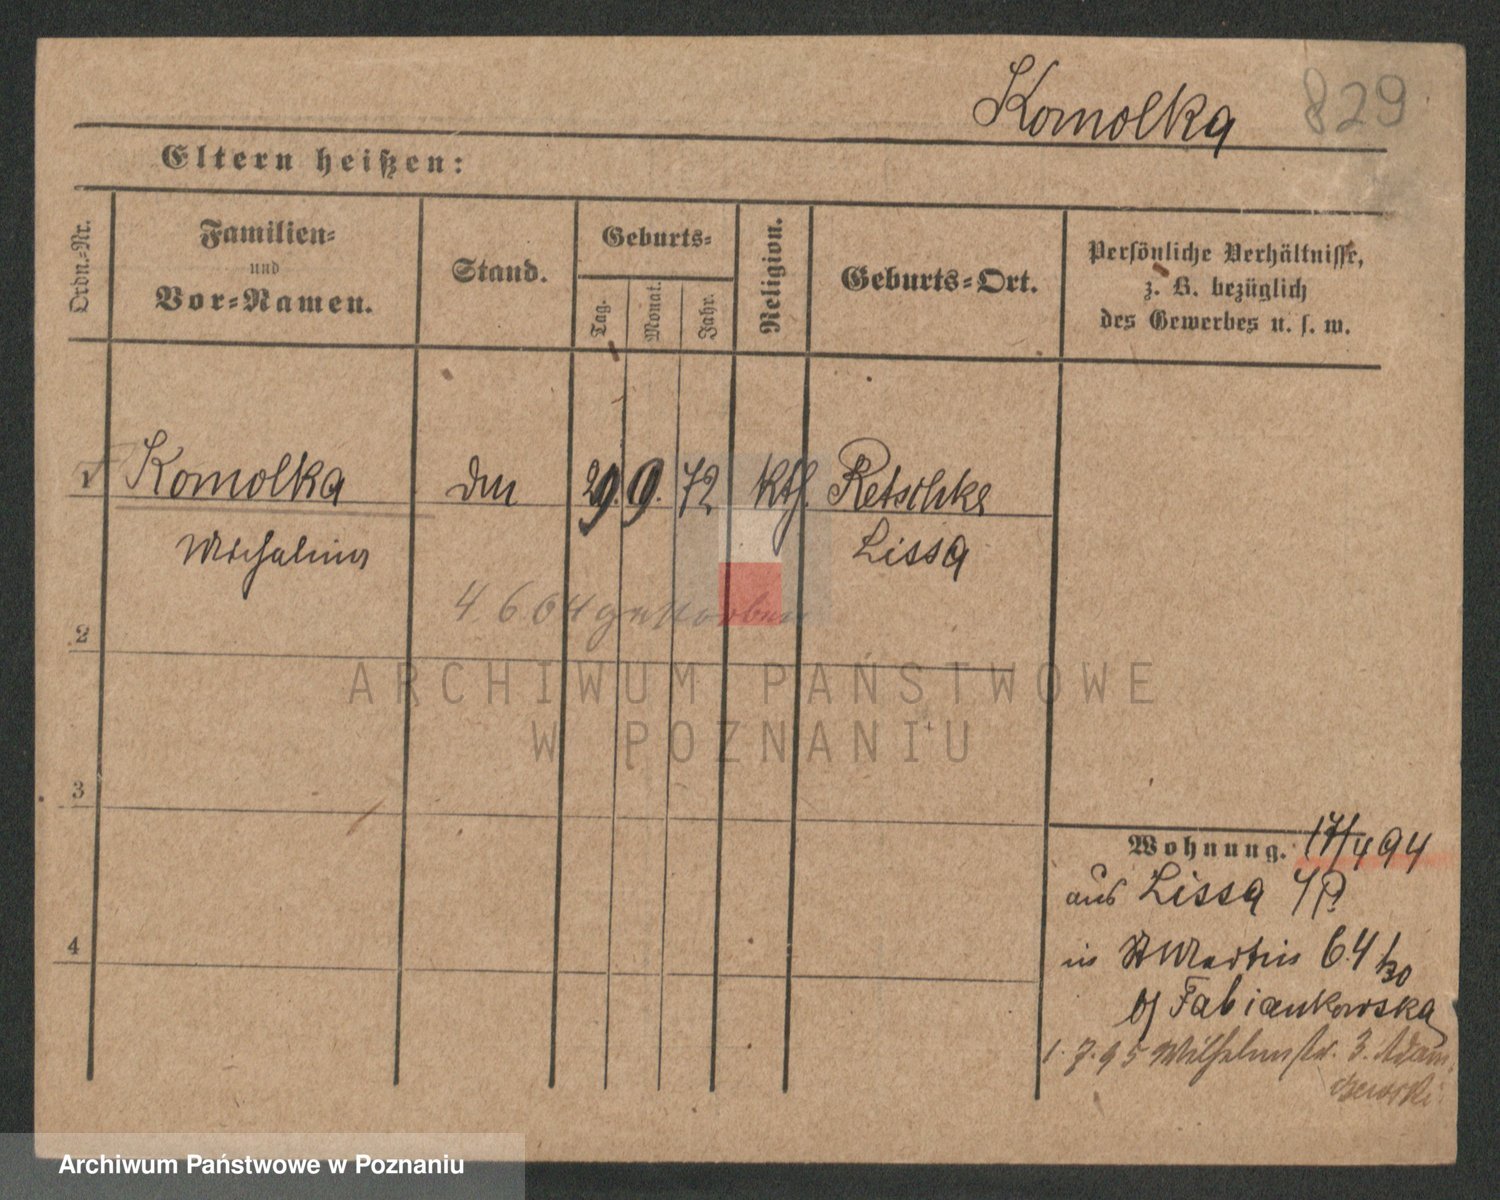 Komolka 829
Eltern heißen:
Ordn.-Nr.
Familien-
und
Vor-Namen.
Stand.
Geburts-
Tag.
Monat.
Jahr.
Religion.
Geburts-Ort.
Persönliche Verhältnisse,
z. B. bezüglich
des Gewerbes u. s. w.
1 Komolka 29. 9. 72 kth. Retschke
Michalina Lissa
4 6 04 gestorben
2
3
4
ARCHIWUM PAŃSTWOWE
W POZNANIU
Wohnung. 17/4 94
aus Lissa i/P.
in St Martin 64
b/ Fabiankowska
1.7.95 Wilhelmstr. 3. Adam
czewski
Archiwum Państwowe w Poznaniu